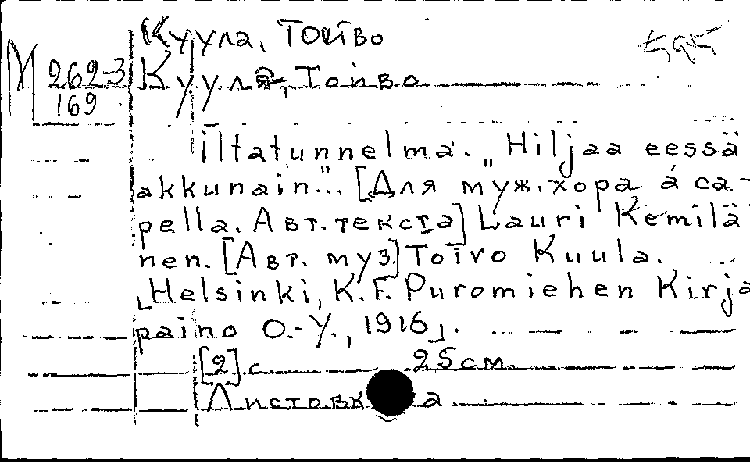 Куула, Тойво
М 262-3
169
Куула, Тойво
Iltatunnelma. „Hiljaa eessä
akkunain"... [Для муж. хора á ca-
pella. Авт. текста] Lauri Kemilä
nen. [Авт. муз] Toivo Kuula.
Helsinki, K. F. Puromiehen Kirja
paino O.-Y., 1916.
[2] с 25 см
Листовка